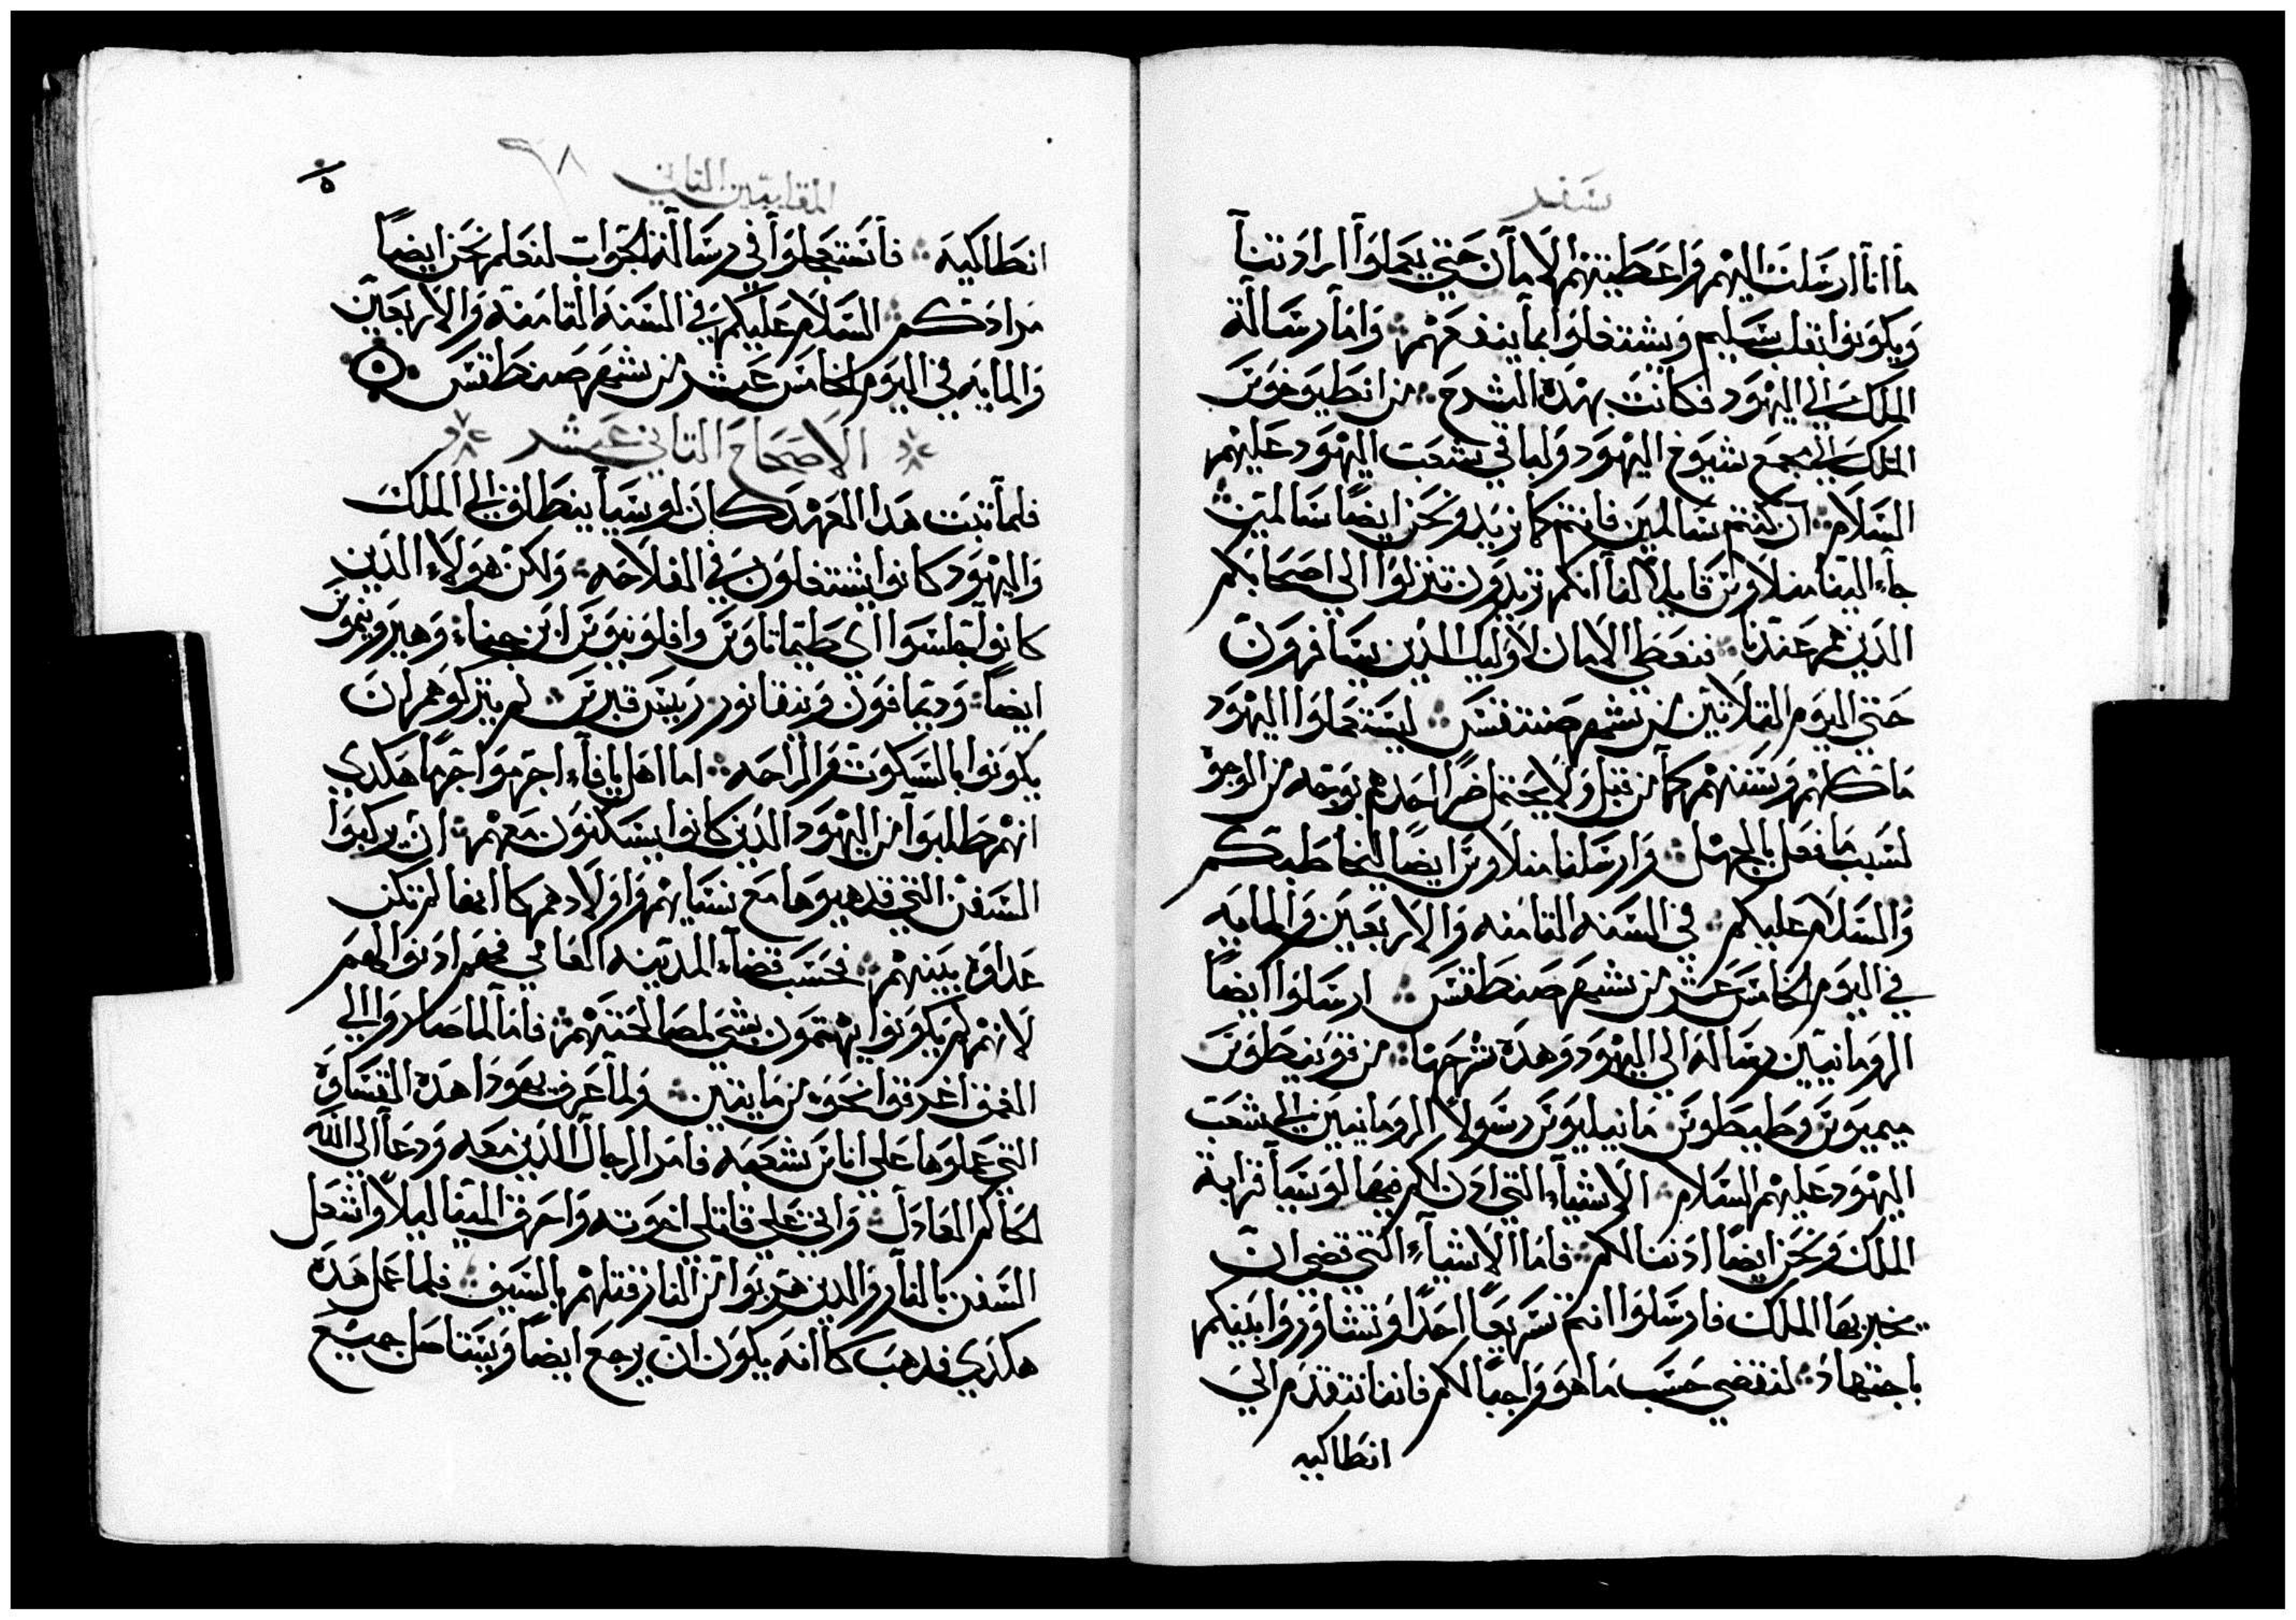 سفر
ما انا ارسلت اليهم واعطيتهم الامان حتي يعملوا ارادتنا
ويكونوا بقلب سليم ويشتغلوا بما ينفعهم واما رسالة
الملك الي اليهود فكانت بهده الشرح من انطيوخوس
الملك الي مجمع شيوخ اليهود ولباقي شعب اليهود عليهم
السلام ان كنتم سالمين فانتم كما نريد ونحن ايضاً سالمين
جاء الينا منلاوس قايلاً لنا انكم تريدون تنزلوا الي اصحابكم
الدين هم عندنا فنعطي الامان لاوليك الدين يسافرون
حتي اليوم التلاتين من شهر صنتقس ليستعملوا اليهود
ماكلهم وسننهم كما من قبل ولا يحتمل ضراً احدهم بوجه من الوجوه
لسبب ما فعل بالجهل وارسلنا منلاوس ايضاً ليخاطبكم
والسلام عليكم في السنه التامنه والاربعين والمايه
في اليوم الخامس عشر من شهر صنطقس ارسلوا ايضاً
الرومانيين رسالة الي اليهود وهده شرحها من قوينطوس
ميميوس وطيطوس مانيليوس رسولا الرومانيين الي شعب
اليهود عليهم السلام الاشياء التي ادن لكم فيها لوسيا قرابة
الملك ونحن ايضاً ادنا لكم فاما الاشياء التي قضي ان
يخبر بها الملك فارسلوا انتم سريعاً احداً وتشاوروا بينكم
باجتهاد لنقضي حسب ما هو واجباً لكم فاننا نتقدم الي
انطاكيه
المقابيين التاني ٩٨
انطاكيه فاستعجلوا في رسالة الجواب لنعلم نحن ايضاً
مرادكم السلام عليكم في السنه التامنه والاربعين
والمايه في اليوم الخامس عشر من شهر صنطقس
الاصحاح التاني عشر
فلما تبت هدا العهد كان لوسيا ينطلق الي الملك
واليهود كانوا يشتغلون في الفلاحه ولكن هولاء الدين
كانوا تجلسوا اي طيماتاوس وافلونيوس ابن جناء وهيرونيموس
ايضاً وديمافون ونيقانور رييس قبرس لم يتركوهم ان
يكونوا بالسكوت والراحه اما اهل يافاء اجرموا جرماً هكدي
انهم طلبوا من اليهود الدين كانوا يسكنون معهم ان يركبوا
السفن التي قد هيوها مع نسايهم واولادهم كا انها لم تكن
عداوة بينهم فحسب قضاء المدينه العامي فهم ادنوا لهم
لانهم لم يكونوا يهتمون بشي لمصالحتهم فاما لما صاروا الي
الغمق اغرقوا نحو من مايتين ولما عرف يهودا هده القساوة
التي عملوها علي اناس شعبه فامر الرجال الدين معه ودعا الي الله
الحاكم العادل واتي علي قاتلي اخوته واحرق المينا ليلاً واشعل
السفن بالنار والدين هربوا من النار قتلهم بالسيف فلما عمل هده
هكدي فدهب كا انه يكون ان يرجع ايضاً ويستاصل جميع